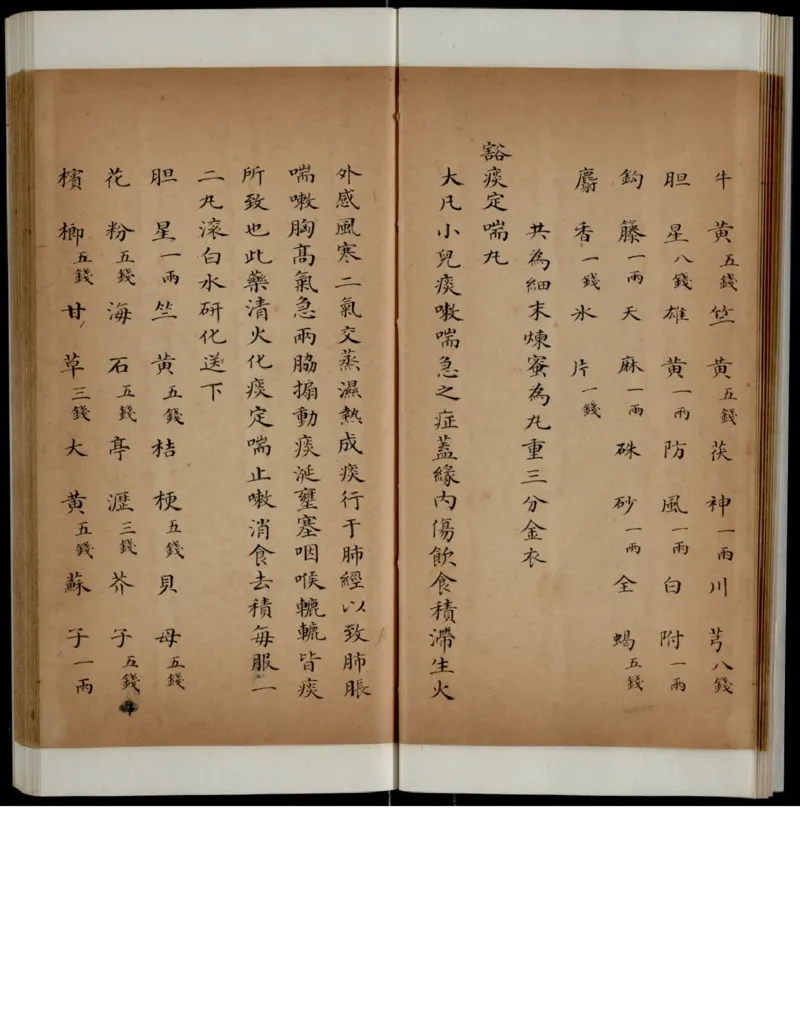 牛黃五錢竺黃五錢茯神一兩川芎八錢
胆星八錢雄黃一兩防風一兩白附一兩
鈎籐一兩天麻一兩硃砂一兩全蝎五錢
麝香一錢氷片一錢
共為細末煉蜜為丸重三分金衣
豁痰定喘丸
大凡小兒痰嗽喘急之症蓋緣內傷飲食積滯生火
外感風寒二氣交蒸濕熱成痰行于肺經以致肺脹
喘嗽胸高氣急兩脇搧動痰涎壅塞咽喉轆轆皆痰
所致也此藥清火化痰定喘止嗽消食去積每服一
二丸滾白水研化送下
胆星一兩竺黃五錢桔梗五錢貝母五錢
花粉五錢海石五錢葶瀝三錢芥子五錢
檳榔五錢甘草三錢大黃五錢蘇子一兩